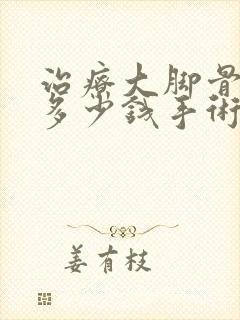 治療大脚骨
多少錢手術
姜有枝